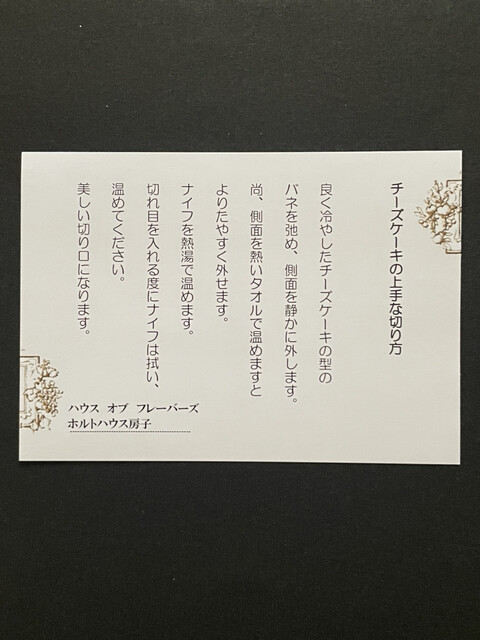 チーズケーキの上手な切り方
良く冷やしたチーズケーキの型の
バネを弛め、側面を静かに外します。
尚、側面を熱いタオルで温めますと
よりたやすく外せます。
ナイフを熱湯で温めます。
切れ目を入れる度にナイフは拭い、
温めてください。
美しい切り口になります。
ハウス オブ フレーバーズ
ホルトハウス房子